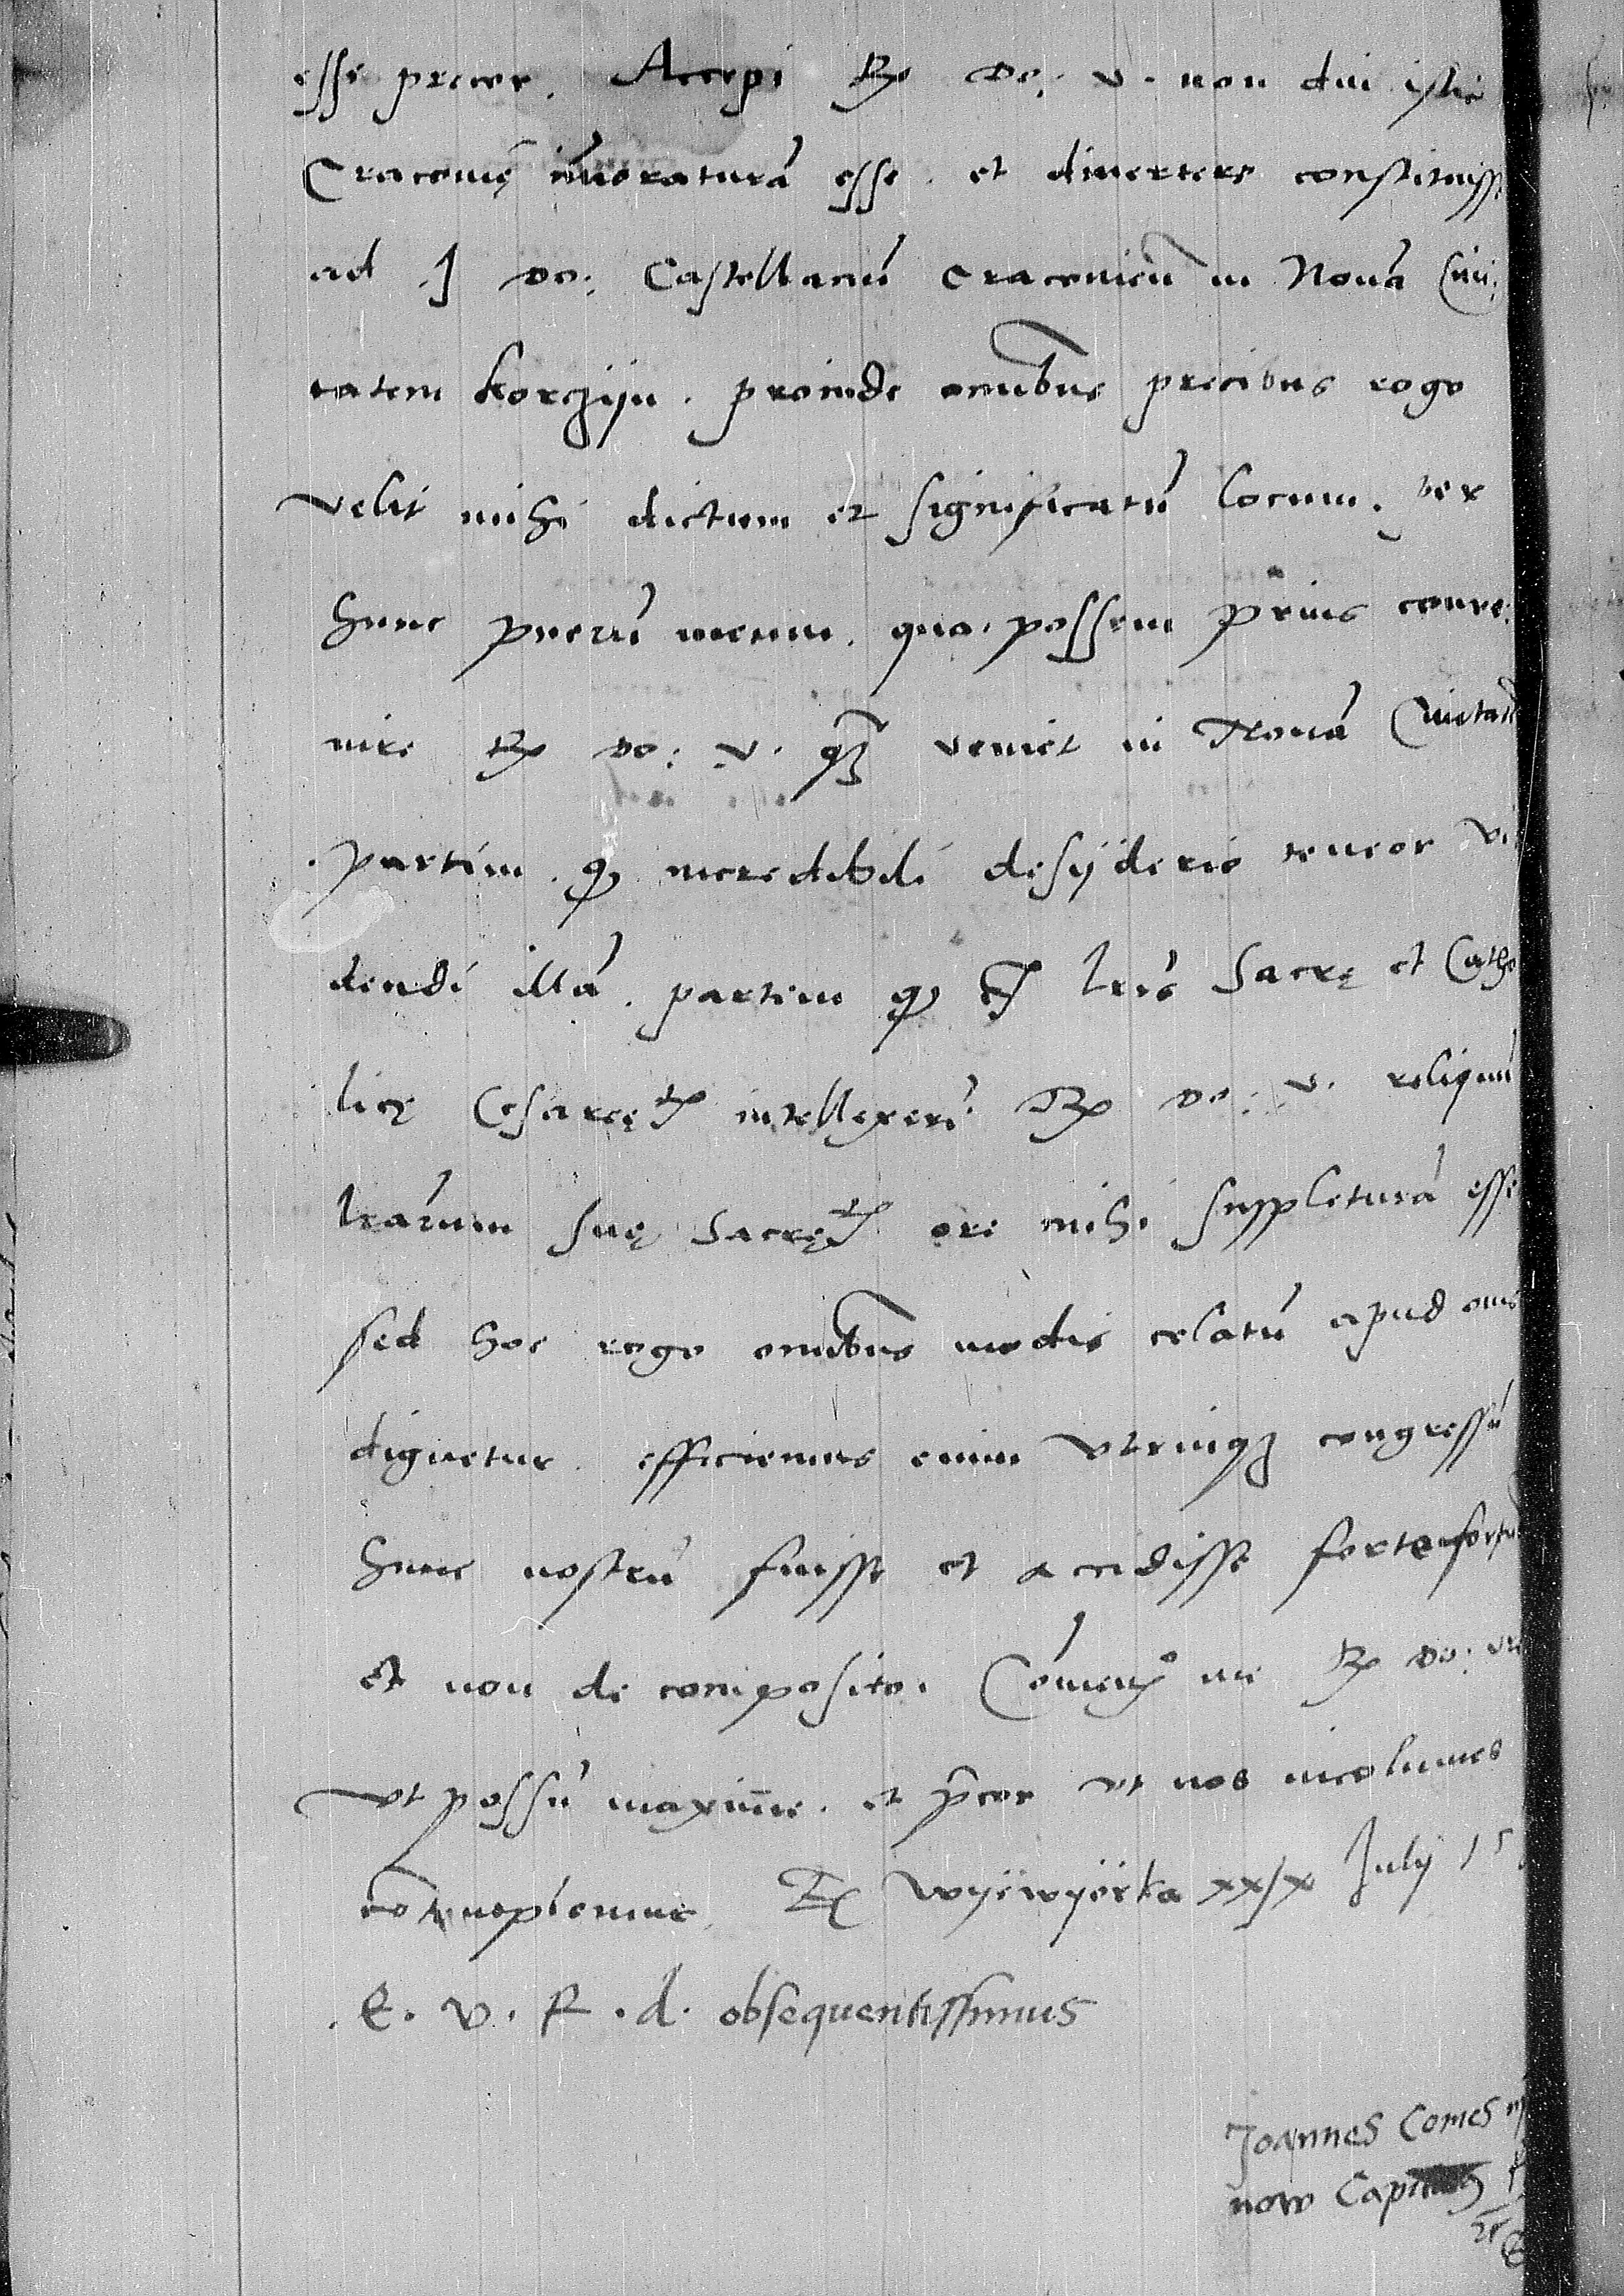 esse precor. Accepi R. Do: V. non diu istic
Cracovię im̄oraturā esse. et divertere constituiss
ad .I Do: Castellanū Cracovien̄ in Novā Civi:
tatem Korczÿn. proinde omībus precibus rogo
velit mihi dictum et significatū locum. per
hunc puerū meum. quo possem prius conve:
nire R. Do: V. qȝ veniet in Novā Civitatē
partim. qꝫ incredibili desÿderio teneor vi
dendi illā. partim qꝫ ex l̄ris Sacrę et Catho
licę Cesareę intellexeri. R. Do: V. reliquū
l̄rarum suę Sacrę ore mihi suppleturā esse
sed hoc rogo omībus modis celatū apud om̄s
dignetur. efficiemus enim utrinqȝ congressū
hunc nostrū fuisse et accidisse forte fortu
et non de composito. Com̄en me R. Do: vr̄
ut possū maxime. et p̄cor ut nos incolumes
contemplemur. Ex Wÿewÿorka xxix July 15
E. V. R. d. obsequentissimus
Joannes Comes
now Capi